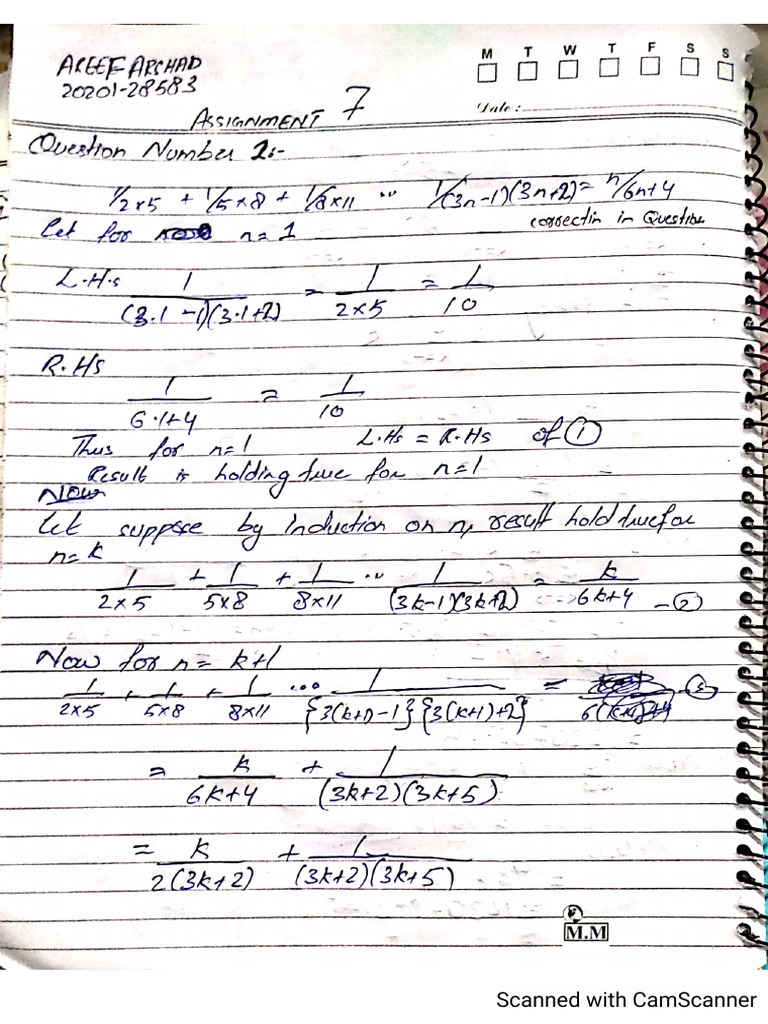 AREEF ARCHAD
20201-28583
M T W T F S S
Date:
ASSIGNMENT 7
Question Number 1:-
1/2×5 + 1/5×8 + 1/8×11 ... 1/(3n-1)(3n+2) = n/6n+4
correctin in Question
Let for n=1
L.H.s 1/(3.1-1)(3.1+2) = 1/2×5 = 1/10
R.Hs
1/6.1+4 = 1/10
Thus for n=1 L.Hs = R.Hs of ①
Result is holding true for n=1
Now
Let suppose by induction on n, result hold true for
n=k
1/2×5 + 1/5×8 + 1/8×11 ... 1/(3k-1)(3k+2) = k/6k+4 -②
Now for n= k+1
1/2×5 + 1/5×8 + 1/8×11 ... 1/{3(k+1)-1}{3(k+1)+2} = -③
= k/6k+4 + 1/(3k+2)(3k+5)
= k/2(3k+2) + 1/(3k+2)(3k+5)
M.M
Scanned with CamScanner